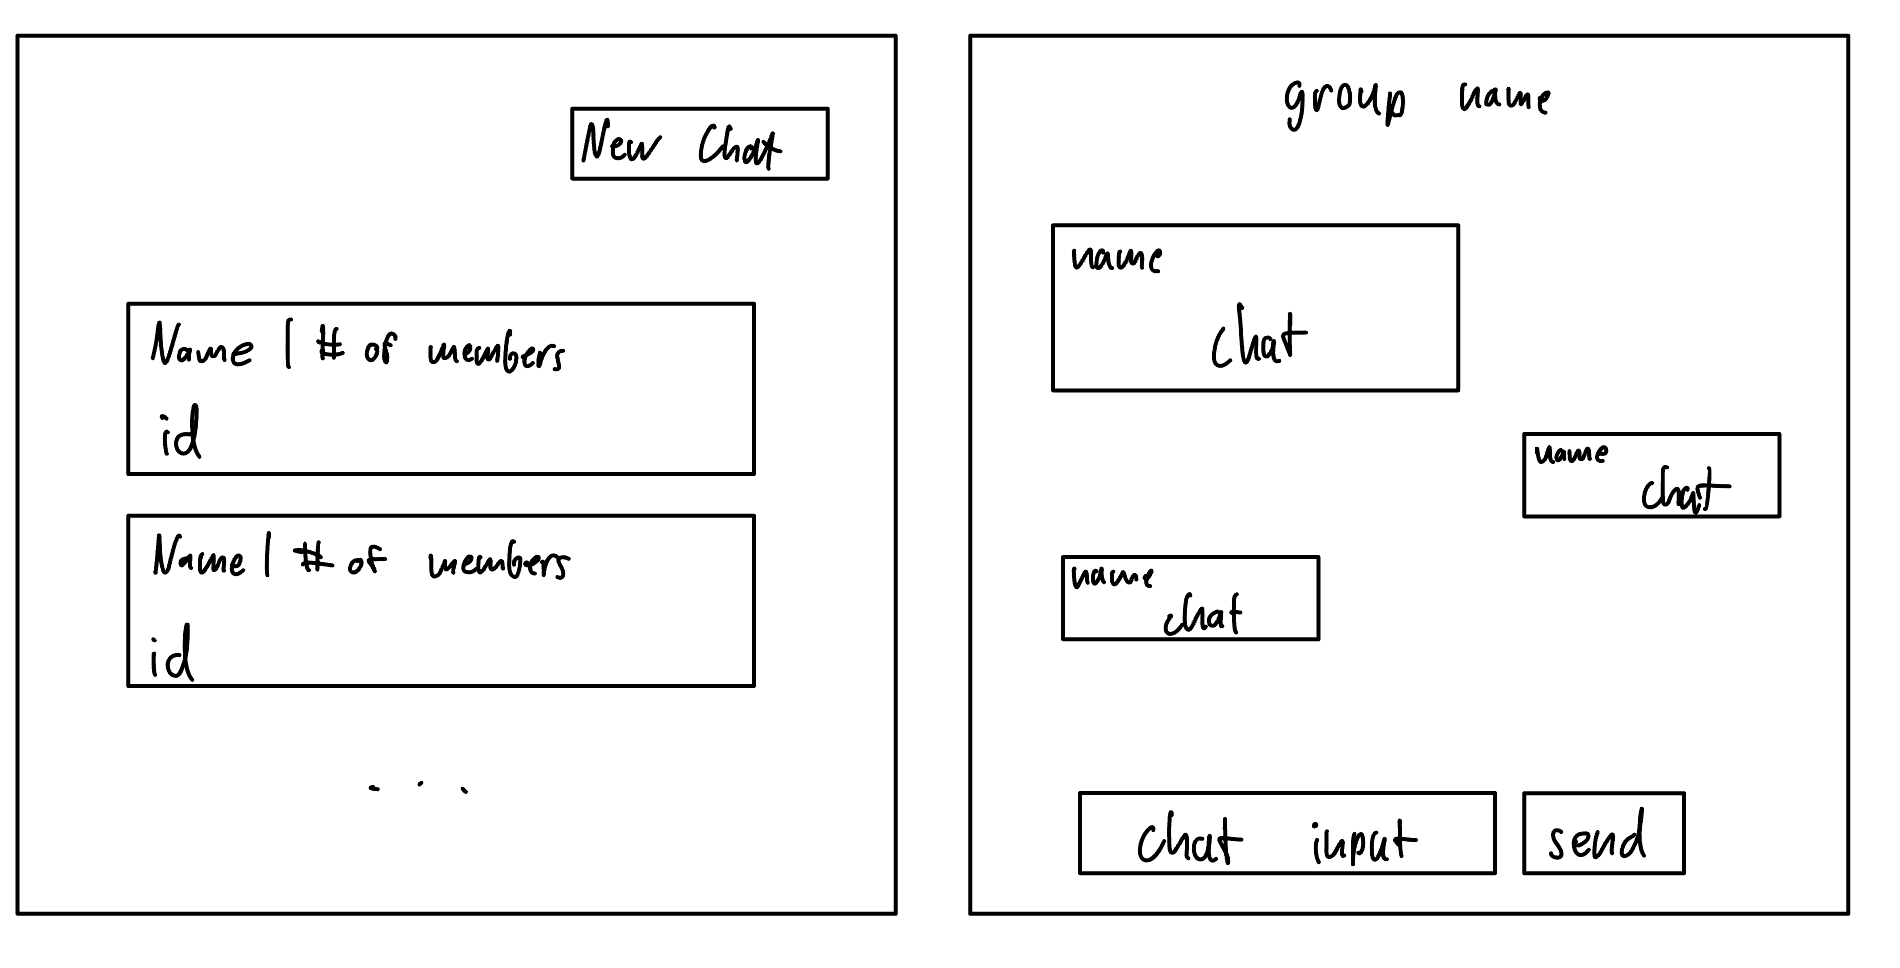 New Chat
Name | # of members
id
Name | # of members
id
...
group name
name
chat
name
chat
name
chat
chat input
send